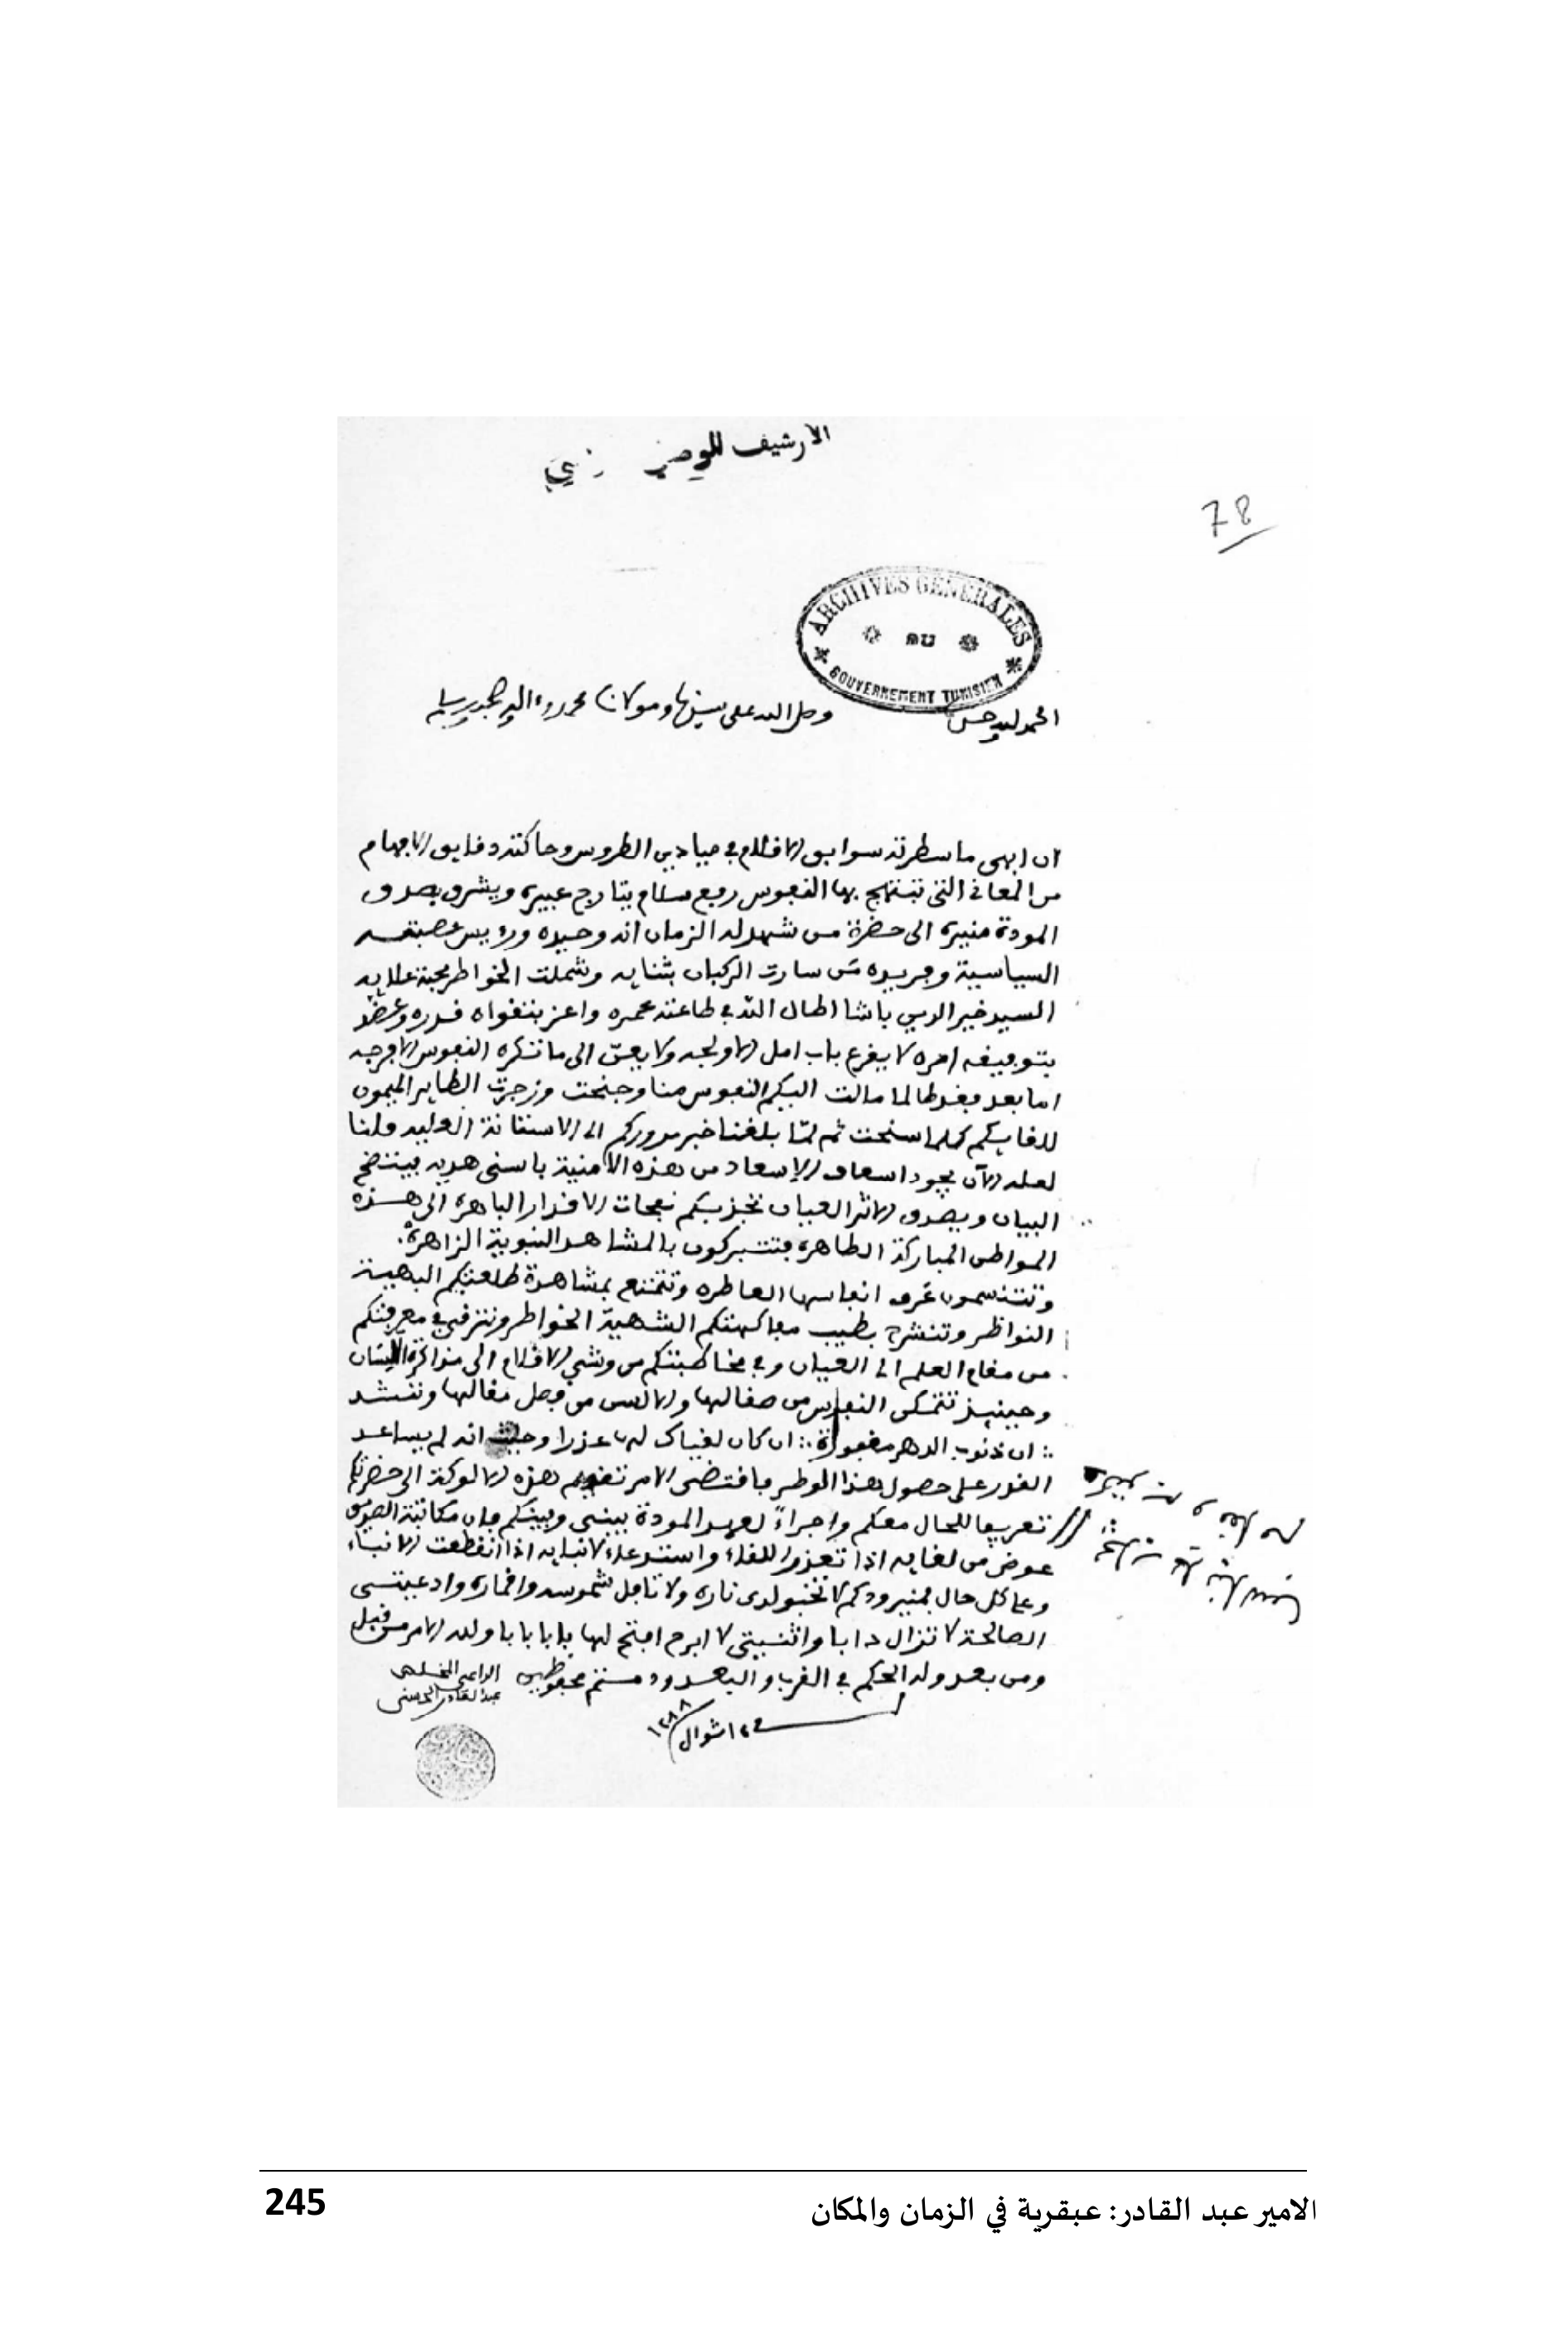 الأرشيف الوطني
78
ARCHIVES GÉNÉRALES
DU
GOUVERNEMENT TUNISIEN
الحمد لله وحده وصلى الله على سيدنا ومولانا محمد وءاله وصحبه وسلم
ان ابهى ما سطرته سوابق الاقلام في ميادين الطروس وحاكته دقايق الافهام
من المعاني التي تبتهج بها النفوس رفع سلام يتارج عبيره ويشرق بصدق
المودة منيره الى حضرة من شهد له الزمان انه وحيده ورءيس عصبته
السياسية وفريده من سارت الركبان بثنايه وشملت الخواطر محبة علايه
السيد خير الدين باشا اطال الله في طاعته عمره واعز بتقواه قدره وعضد
بتوفيقه امره لا يقرع باب امل الا ولجه ولا الى ما تكره النفوس الا فرجه
اما بعد فقد طالما مالت اليكم النفوس منا وجنحت وزجرت الطاير الميمون
للقايكم كلما سنحت ثم لمّا بلغنا خبر مروركم الى الاستانة العليه قلنا
لعله الآن يجود اسعاف الإسعاد من هذه الأمنية باسنى هديه فيتضح
البيان ويصدق الاثر العيان تجذبكم نفحات الاقدار الباهرة الى هذه
المواطن المباركة الطاهرة فتتبركون بالمشاهد النبوية الزاهرة.
وتتنسمون عَرف انفاسها العاطره وتتمتع بمشاهدة طلعتكم البهية
النواظر وتنشرح بطيب مفاكهتكم الشهية الخواطر ونترقى في معرفتكم
من مقام العلم الى العيان وفي مخاطبتكم من وشي الاقلام الى مذاكرة اللسان
وحينيذ تتمكن النفوس من صفا لها والالسن من فصل مقالها وننشد
ان ذنوب الدهر مغفورة ان كان لقياك لها عذرا وحيث انه لم يساعد
القدر على حصول هذا الوطر فاقتضى الامر تقديم هذه الالوكة الى حضرتكم
تعريفا للحال معكم وإجراءً لعهد المودة بيننا وبينكم فان مكاتبة الصديق
عوض من لقايه اذا تعذر اللقاء واستدعاء لانبايه اذا انقطعت الانباء
وعلى كل حال فمنير ودكم لا تخبو لدي ناره ولا تافل شموسه واقماره وادعيتي
الصالحة لا تزال دابا واثنيتي لا ابرح افتح لها بابا بابا ولله الامر من قبل
ومن بعد وله الحكم في القرب والبعد ودمتم محفوظين
الداعي المخلص
عبد القادر الحسني
شوال ١٢٨٨
الامير عبد القادر: عبقرية في الزمان والمكان
245